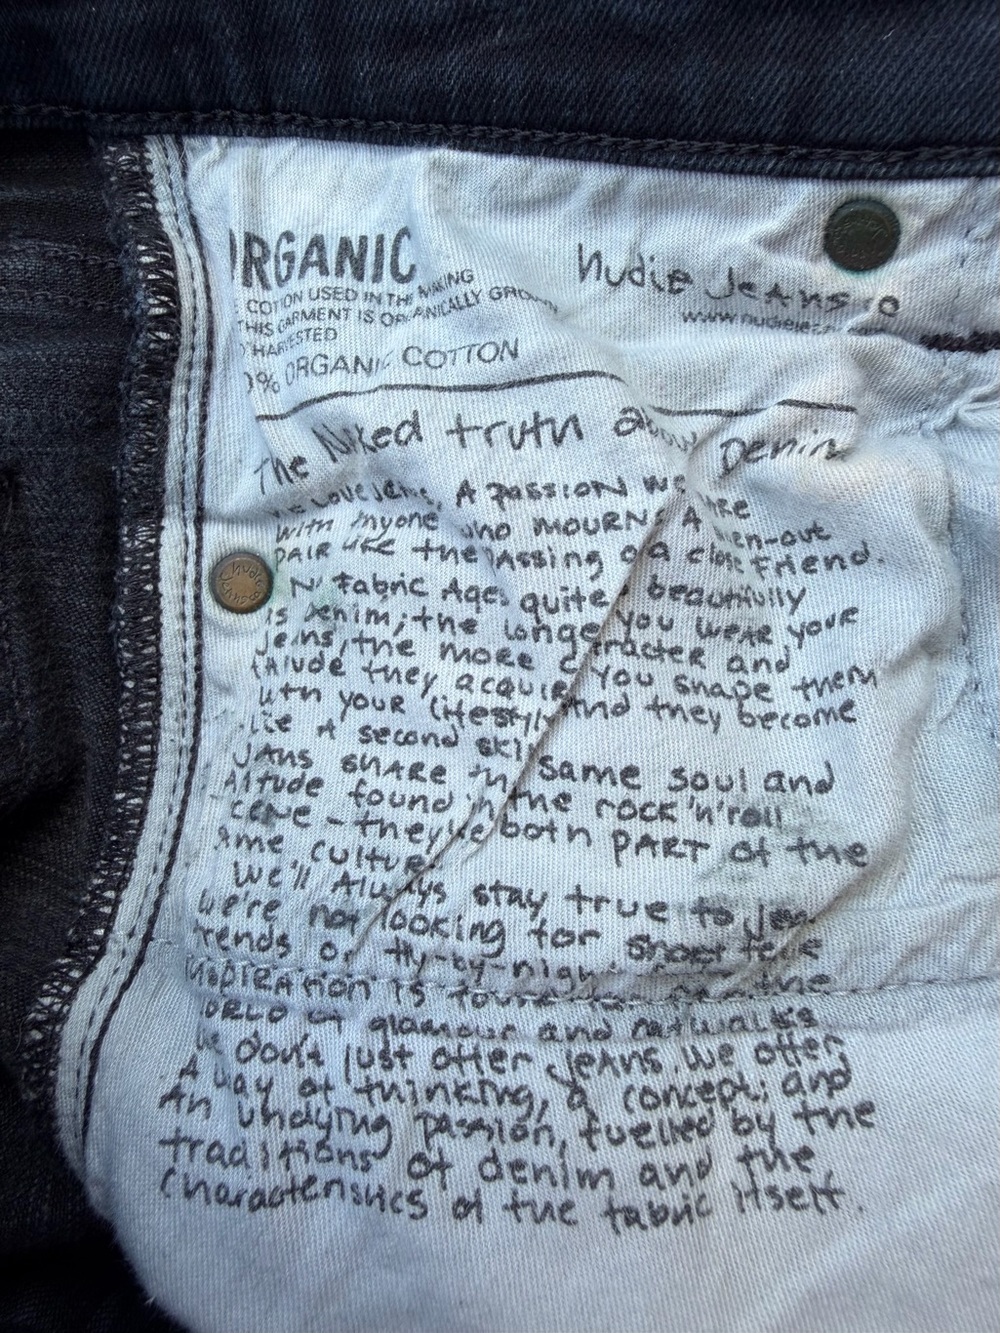 ORGANIC
COTTON USED IN THE MAKING
THIS GARMENT IS ORGANICALLY GROWN
HARVESTED
% ORGANIC COTTON
Nudie Jeans co
www.nudiejeans
The Naked truth about Denim
We Love Jeans, A passion we share
with Anyone who mourns A worn-out
pair like the passing of a close friend.
No Fabric Ages quite as beautifully
as Denim; the longer you wear your
Jeans, the more character and
attitude they acquire. You shape them
with your lifestyle, and they become
like A second skin.
Jeans share the same soul and
Attitude found in the rock'n'roll
scene – they're both PART of the
same culture.
We'll Always stay true to Jeans
We're not looking for short term
trends or fly-by-night
inspiration is found the
world of glamour and catwalks
We don't just offer Jeans. We offer
A way of thinking, a concept; and
An undying passion, fuelled by the
traditions of denim and the
characteristics of the fabric itself.
nudie jeans